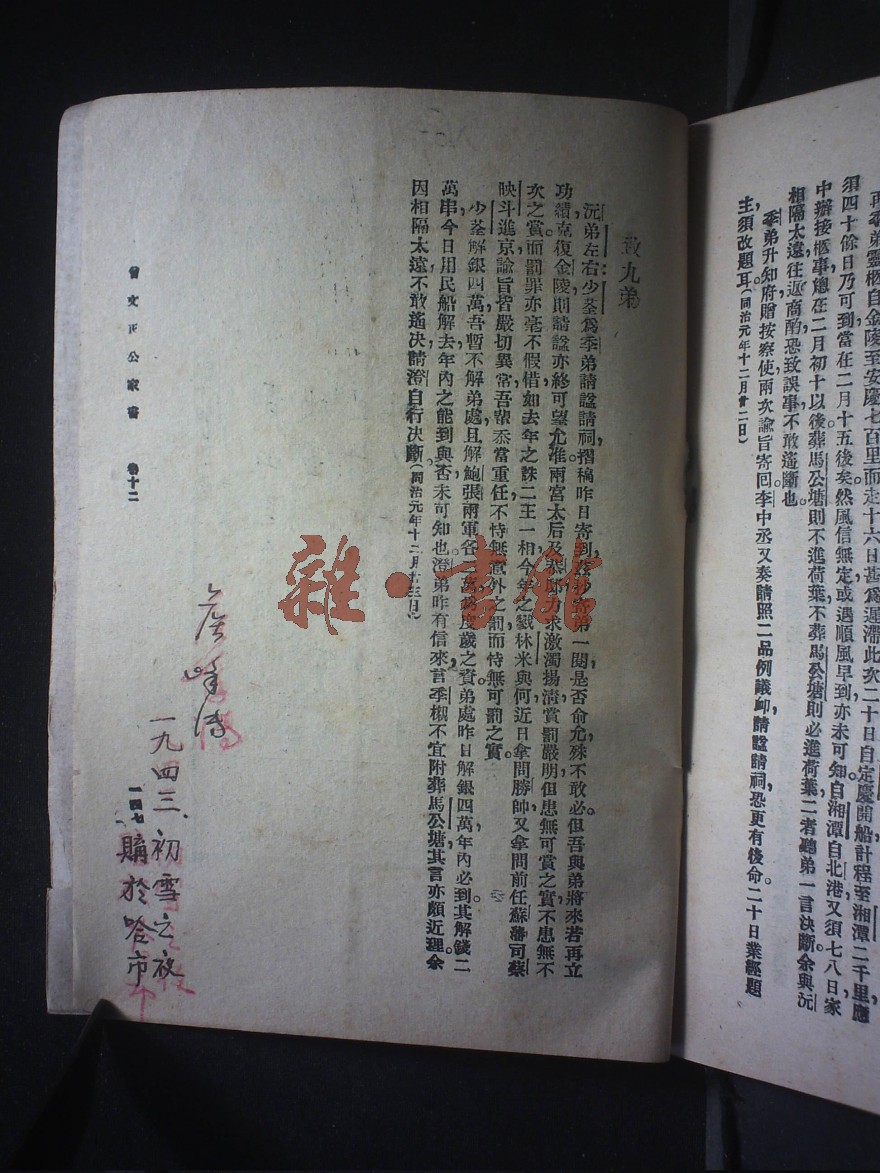 再季弟靈柩自金陵至安慶七百里而走十六日甚爲遲滯此次二十日自定慶開船計程至湘潭二千里，應
須四十餘日乃可到當在二月十五後矣然風信無定或遇順風早到亦未可知。自湘潭自北港又須七八日家
中辦接柩事，總在二月初十以後葬馬公塘則不進荷葉不葬馬公塘則必進荷葉二者聽弟一言決斷。余與沅
相隔太遠往返商酌恐致誤事不敢遙斷也
季弟升知府贈按察使兩次諭旨寄回李中丞又奏請照二品例議卹請諡請祠，恐更有後命二十日業經題
主須改題耳。（同治元年十二月廿二日）
致九弟
沅弟左右：少荃爲季弟請諡請祠，摺稿昨日寄到，茲抄寄弟一閱，是否俞允，殊不敢必。但吾與弟將來若再立
功績，克復金陵則請諡亦終可望允准兩宮太后及恭邸力求激濁揚清賞罰嚴明但患無可賞之實不患無不
次之賞。而罰罪亦毫不假借如去年之誅二王一相今年之戮林米與何近日拿問勝帥又拿問前任蘇藩司蔡
映斗進京諭旨皆嚴切異常吾輩忝當重任不恃無意外之罰而恃無可罰之實。
少荃解銀四萬，吾暫不解弟處，且解鮑張兩軍各二萬爲度歲之資。弟處昨日解銀四萬年內必到其解錢二
萬串，今日用民船解去年內之能到與否未可知也。澄弟昨有信來，言季櫬不宜附葬馬公塘，其言亦頗近理余
因相隔太遠不敢遙決請澄自行決斷。（同治元年十二月廿三日）
曾文正公家書 卷十二
一四七
一九四三、初雪之夜
購於哈市
雜·書館